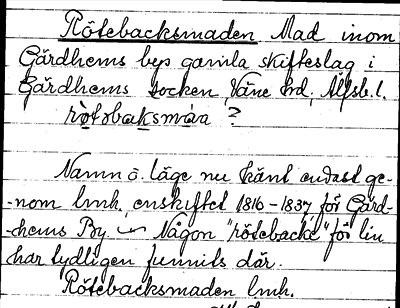 Rötebacksmaden Mad inom
Gärdhems bys gamla skifteslag i
Gärdhems socken, Väne hd, Älfsb. l.
rötobaksmáa ?
Namn o. läge nu känt endast ge-
-nom lmh. enskiftet 1816-1837 för Gärd-
-hems By. Någon "rötebacke" för lin
har tydligen funnits där.
Rötebacksmaden lmh.